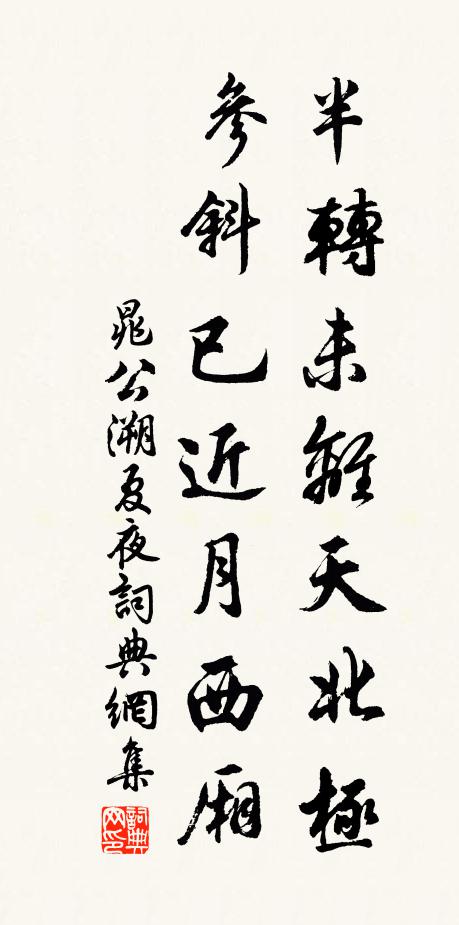 半轉未離天北極
參斜已近月西廂
晁公溯夏夜詞典網集
詞典网印